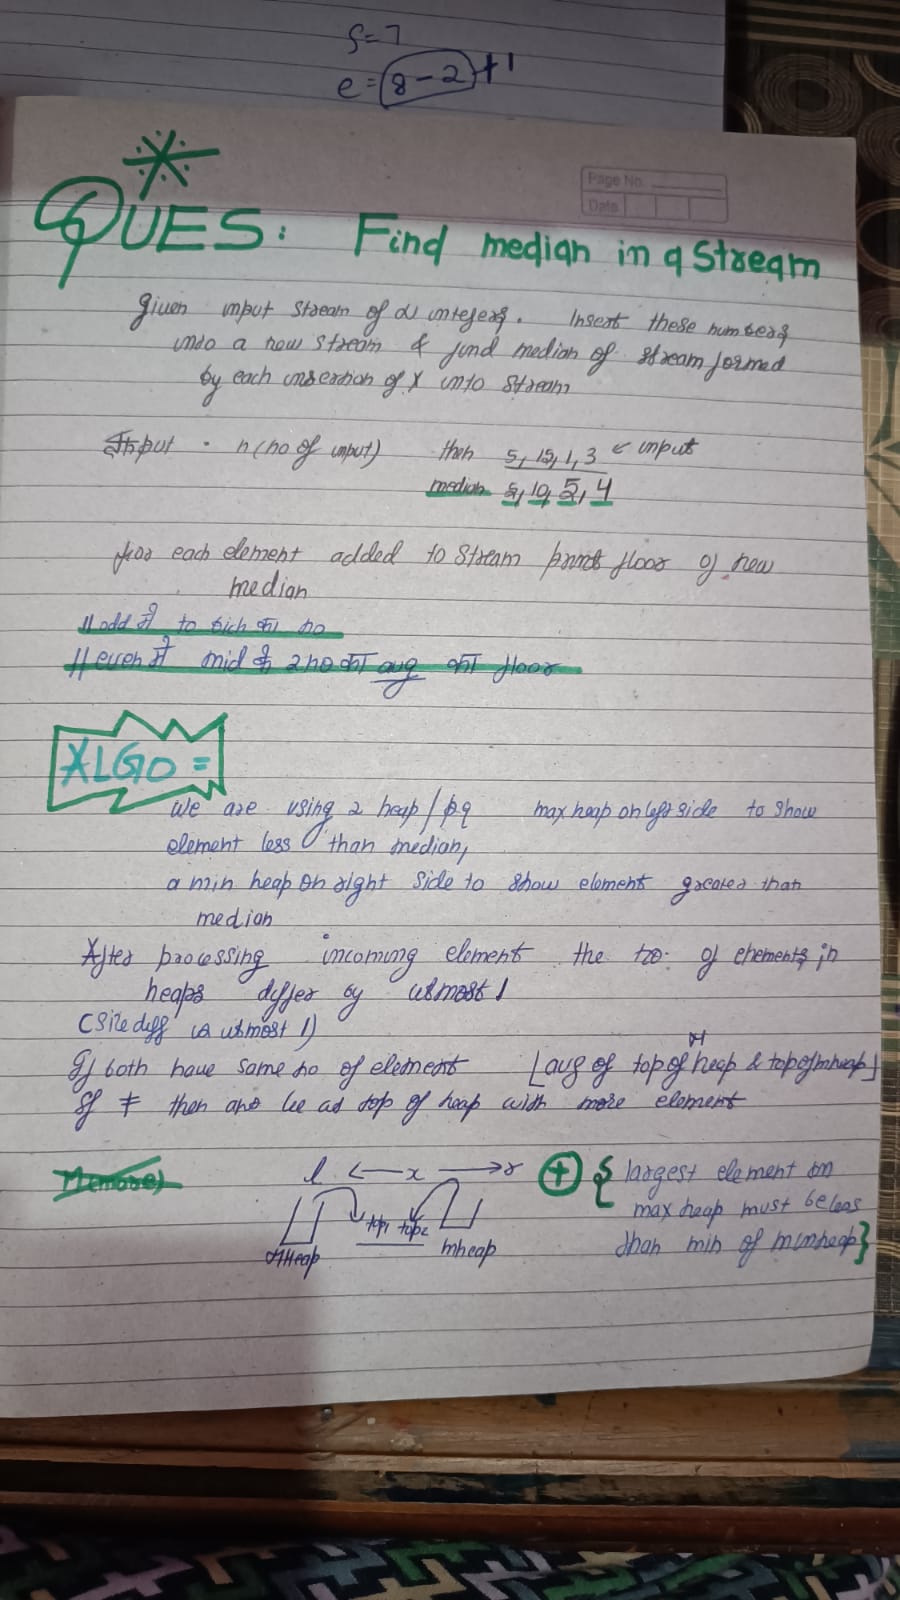 s=7
e=8-2+1
Page No.
Date
QUES: Find median in a Stream
given input stream of N integers. Insert these numbers
into a new stream & find median of stream formed
by each insertion of X into stream
Input · n(no of input) then 5, 15, 1, 3 ← input
median 5, 10, 5, 4
for each element added to stream print floor of new
median
// odd में to bich का no
// even में mid के 2 no का avg का floor
ALGO =
we are using 2 heap/pq max heap on left side to show
element less than median,
a min heap on right side to show element greater than
median
After processing incoming element the no. of elements in
heaps differ by utmost 1
(size diff is utmost 1)
If both have same no of element ⌊avg of top of Heap & top of mheap⌋
If ≠ then ans be at top of heap with more element
l ← x → r
top1 top2
MHeap mheap
+ { largest element on
max heap must be less
than min of minheap }